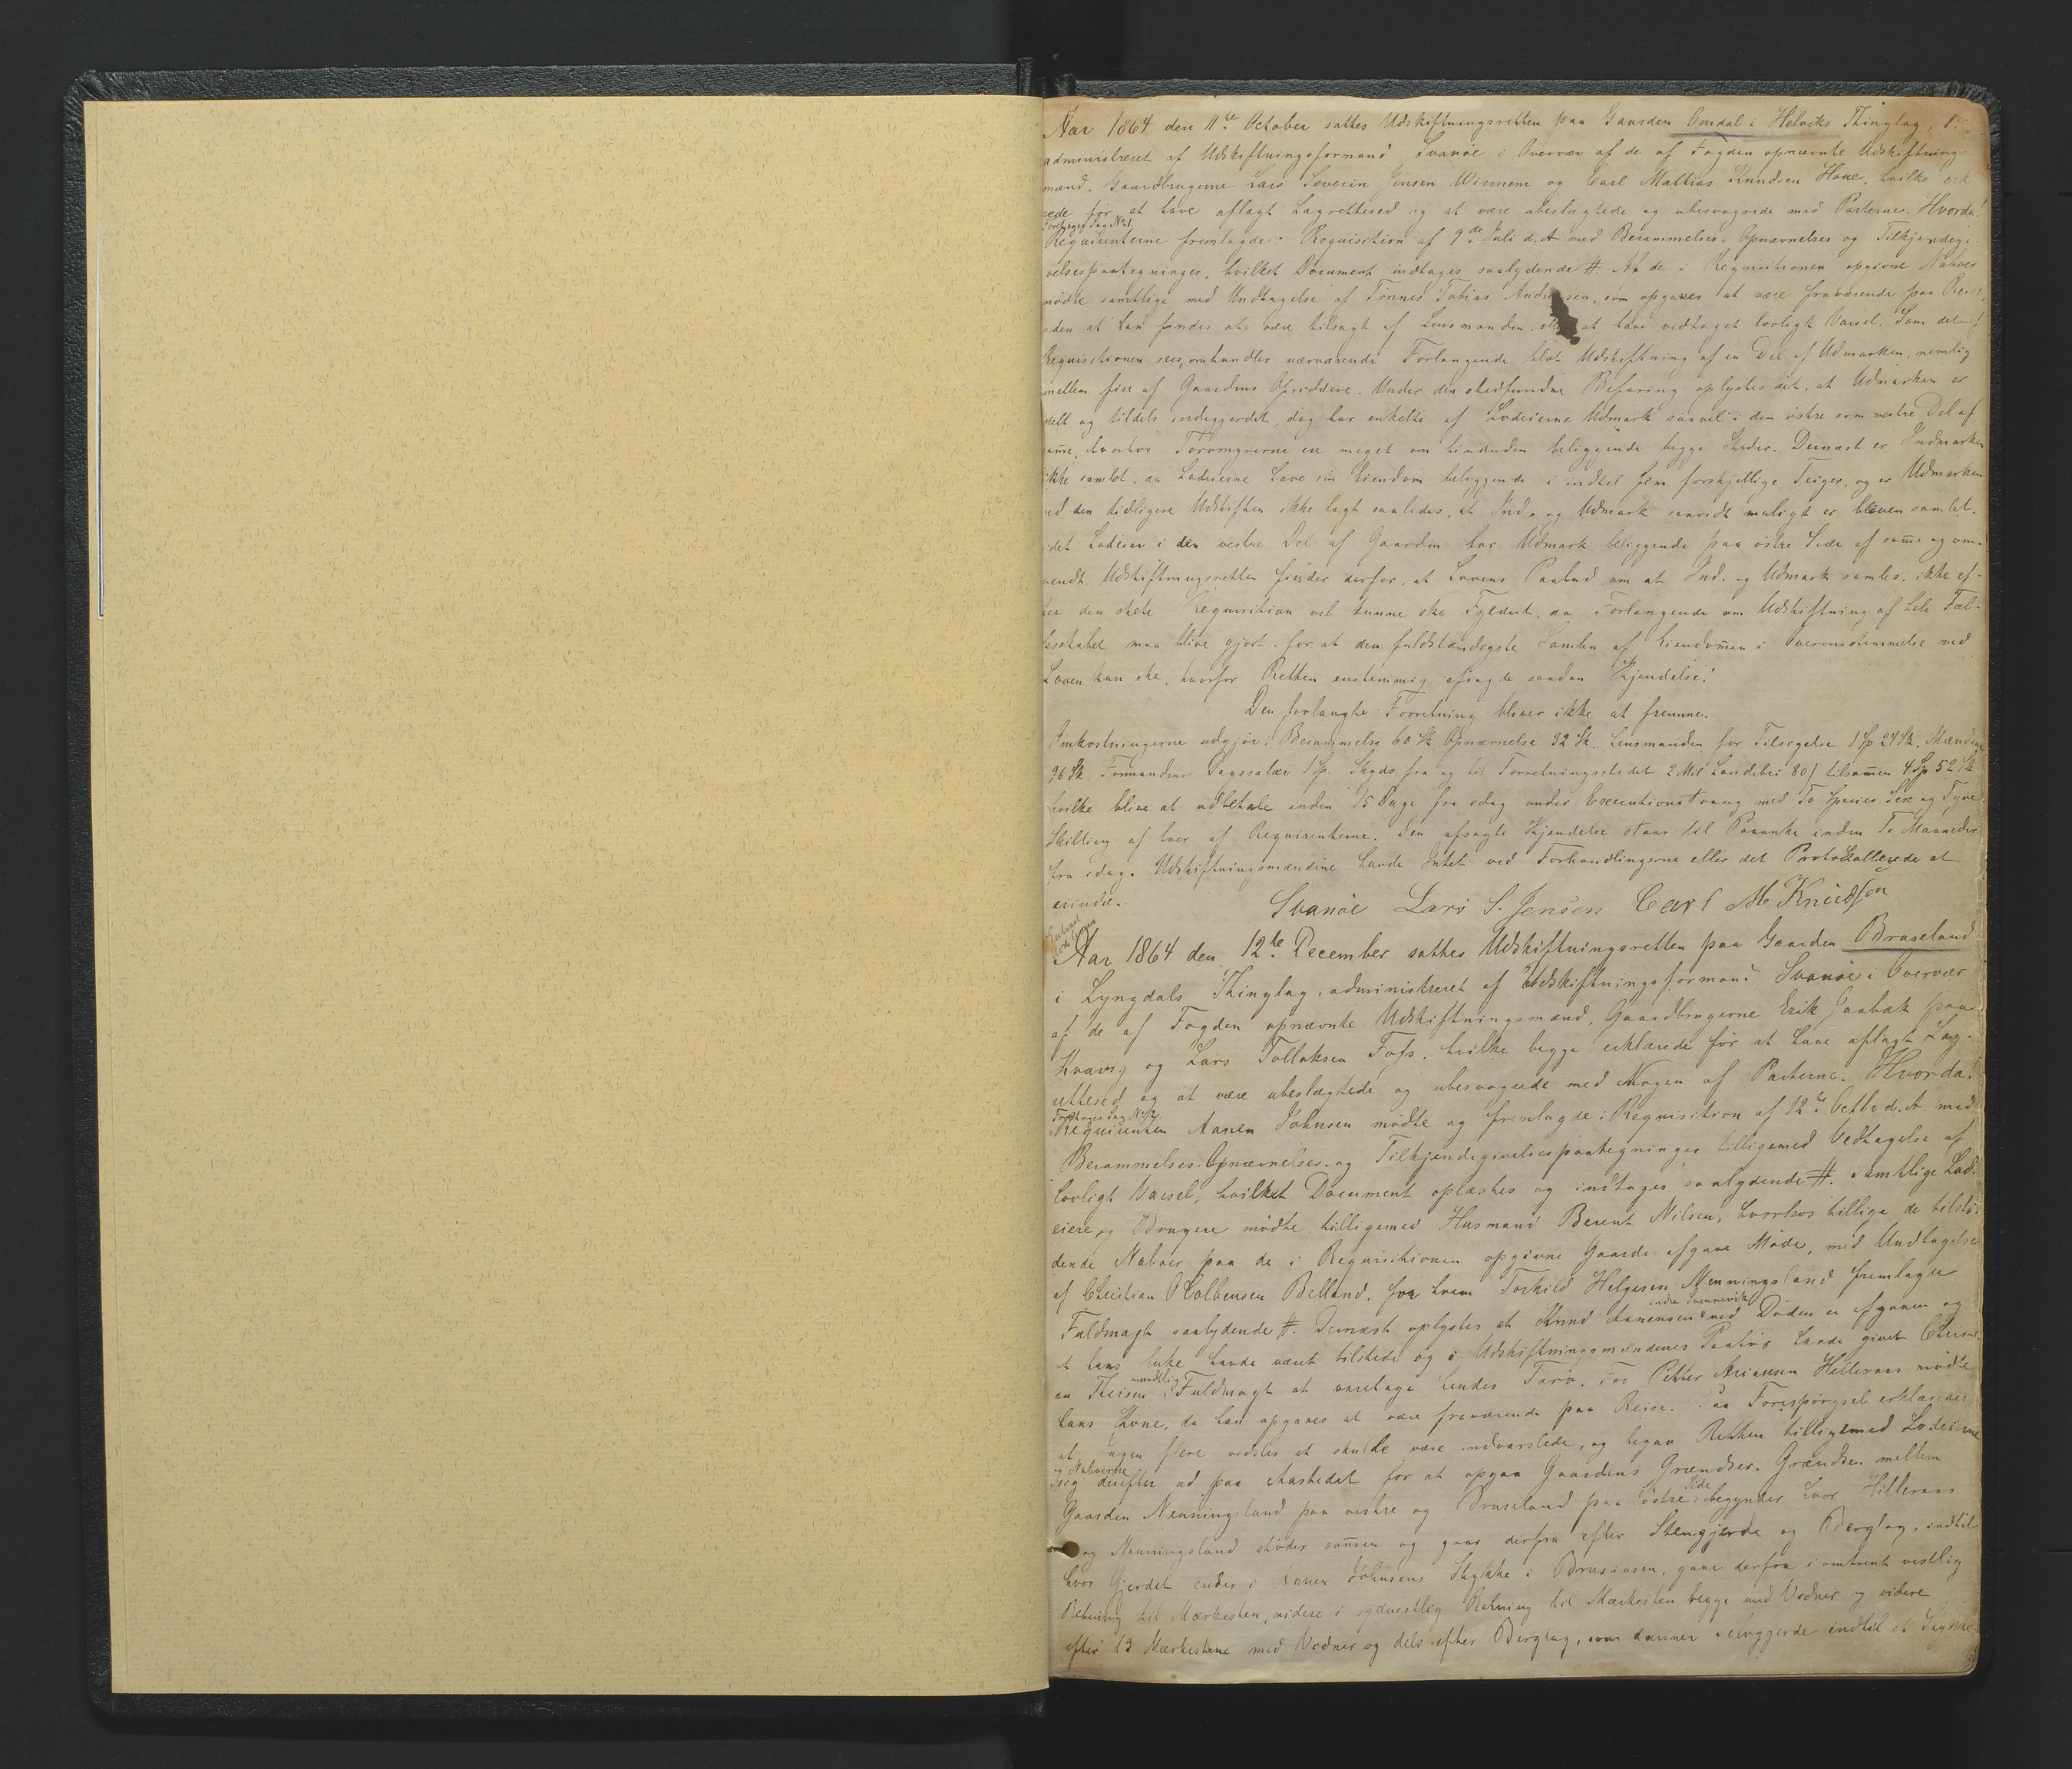 Aar 1864 den 11te October sattes Udskiftningsretten paa Gaarden Omdal i Helviks Thinglag, 1.
administreret af Udskiftningsformand Svanøe i Overvær af de af Fogden opnævnte Udskiftnings
mænd, Gaardbrugerne Lars Severin Jensen Winnem og Carl Mathias Knudsen Haue, hvilke erk
rede før at have aflagt Lagrettesed og at være ubeslægtede og ubesvogrede med Parterne. Hvorda!
Foretages Sag No 1
Requirenterne fremlagde: Requisition af 9de Juli d. A. med Berammelses, Opnævnelses og Tilkjendegi
velsespaategninger, hvilket Document indtages saalydende #. Af de i Requisitionen opgivne Naboer
mødte samtlige med Undtagelse af Tønnes Tobias Andreasen, som opgaves at være fraværende paa Reise,
uden at han fandtes at være tilsagt af Lensmanden eller at have vedtaget lovligt Varsel. Som det af
Requisitionen sees, omhandler nærværende Forlangende blot Udskiftning af en Del af Udmarken, nemlig
mellem fire af Gaardens Opsiddere. Under den stedfundne Befaring oplystes det, at Udmarken er
delt og tildels indegjerdet, dog har enkelte af Lodeierne Udmark saavel i den østre som vestre Del af
same, hvorhos Torvmyrerne ere meget om hinanden beliggende begge Steder. Dernæst er Indmarken
ikke samlet, da Lodeierne have sin Eiendom beliggende i indtil fem forskjellige Teiger, og er Udmarken
ved den tidligere Udskiften ikke lagt saaledes, at Ind- og Udmark saavidt muligt er bleven samlet,
idet Lodeier i den vestre Del af Gaarden har Udmark beliggende paa østre Side af same og om-
vendt. Udskiftningsretten finder derfor, at Lovens Paabud om at Ind- og Udmark samles, ikke ef-
ter den skete Requisition vil kunne ske Fyldest, da Forlangende om Udskiftning af hele Fæl-
lesskabet maa blive gjort, for at den fuldstændigste Samlen af Eiendomen i Overensstemmelse med
Loven kan ske, hvorfor Retten enstemmig afsagde saadan Kjendelse:
Den forlangte Forretning bliver ikke at fremme.
Omkostningerne udgjør: Berammelse 60 Sk Opnævnelse 32 Sk. Lensmanden for Tilsigelse 1 Sp 24 Sk, Mændene
96 Sk. Formandens Dagssalær 1 Sp. Skyds fra og til Forretningsstedet 2 Mil Landevei 80 / tilsamen 4 Sp 52 Sk
hvilke blive at udbetale inden 15 Dage fra idag under Executionstvang med To Species Sex og Tyve
Skilling af hver af Requirenterne. Den afsagte Kjendelse staar til Paaanke inden To Maaneder
fra idag. Udskiftningsmændene havde Intet ved Forhandlingerne eller det Protokollerede at
erindre.
Svanøe Lars S. Jensen Carl M. Knudsøn
Aar 1864 den 12te December sattes Udskiftningsretten paa Gaarden Bruseland
i Lyngdals Thinglag, administreret af Udskiftningsformand Svanøe i Overvær
af de af Fogden opnævnte Udskiftningsmænd, Gaardbrugerne Erik Jaabæk paa
Kvavig og Lars Tollaksen Foss, hvilke begge erklærede før at have aflagt Lag-
rettesed og at være ubeslægtede og ubesvogrede med Nogen af Parterne. Hvorda!
Foretages Sag No 2
Requirenten Aanen Johnsen mødte og fremlagde: Requisition af 12te Octbr d. A. med
Berammelses- Opnævnelses- og Tilkjendegivelsespaategninger tilligemed Vedtagelse af
lovligt Varsel, hvilket Document oplæstes og indtages saalydende #. Samtlige Lod-
eiere og Brugere mødte tilligemed Husmand Berent Nilsen, hvorhos tillige de tilstø-
dende Naboer paa de i Requisitionen opgivne Gaarde afgave Møde, med Undtagelse
af Christian Kolbensen Belland, for hvem Torkild Helgesen Nenningsland fremlagde
indre Svennevik
Fuldmagt saalydende #. Dernæst oplystes at Knud Aanensen ved Døden er afgaaen og
at hans Enke havde været tilstede og i Udskiftningsmændenes Paahør havde givet Christi
mundtlig
an Theisen Fuldmagt at varetage hendes Tarv. For Petter Ariansen Hilleraas mødte
hans Kone, da han opgaves at være fraværende paa Reise. Paa Forespørgsel erklæredes
at Ingen flere vidstes at skulde være indvarslede, og begav Retten tilligemed Lodeierne
og Naboerne
sig derefter ud paa Aastedet for at opgaa Gaardens Grændser. Grændsen mellem
Side
Gaarden Nenningsland paa vestre og Bruseland paa østre begynder hvor Hilleraas
og Nenningsland støder samen og gaar derfra efter Stengjerde og Berglag, indtil
hvor Gjerdet ender i Aanen Johnsens Stykke i Brusaasen, gaar derfra i omtrent vestlig
Retning til Mærkesten, videre i sydvestlig Retning til Mærkesten begge med Vidner og videre
efter 13 Mærkestene med Vidner og dels efter Berglag, som danner Selvgjerde indtil et